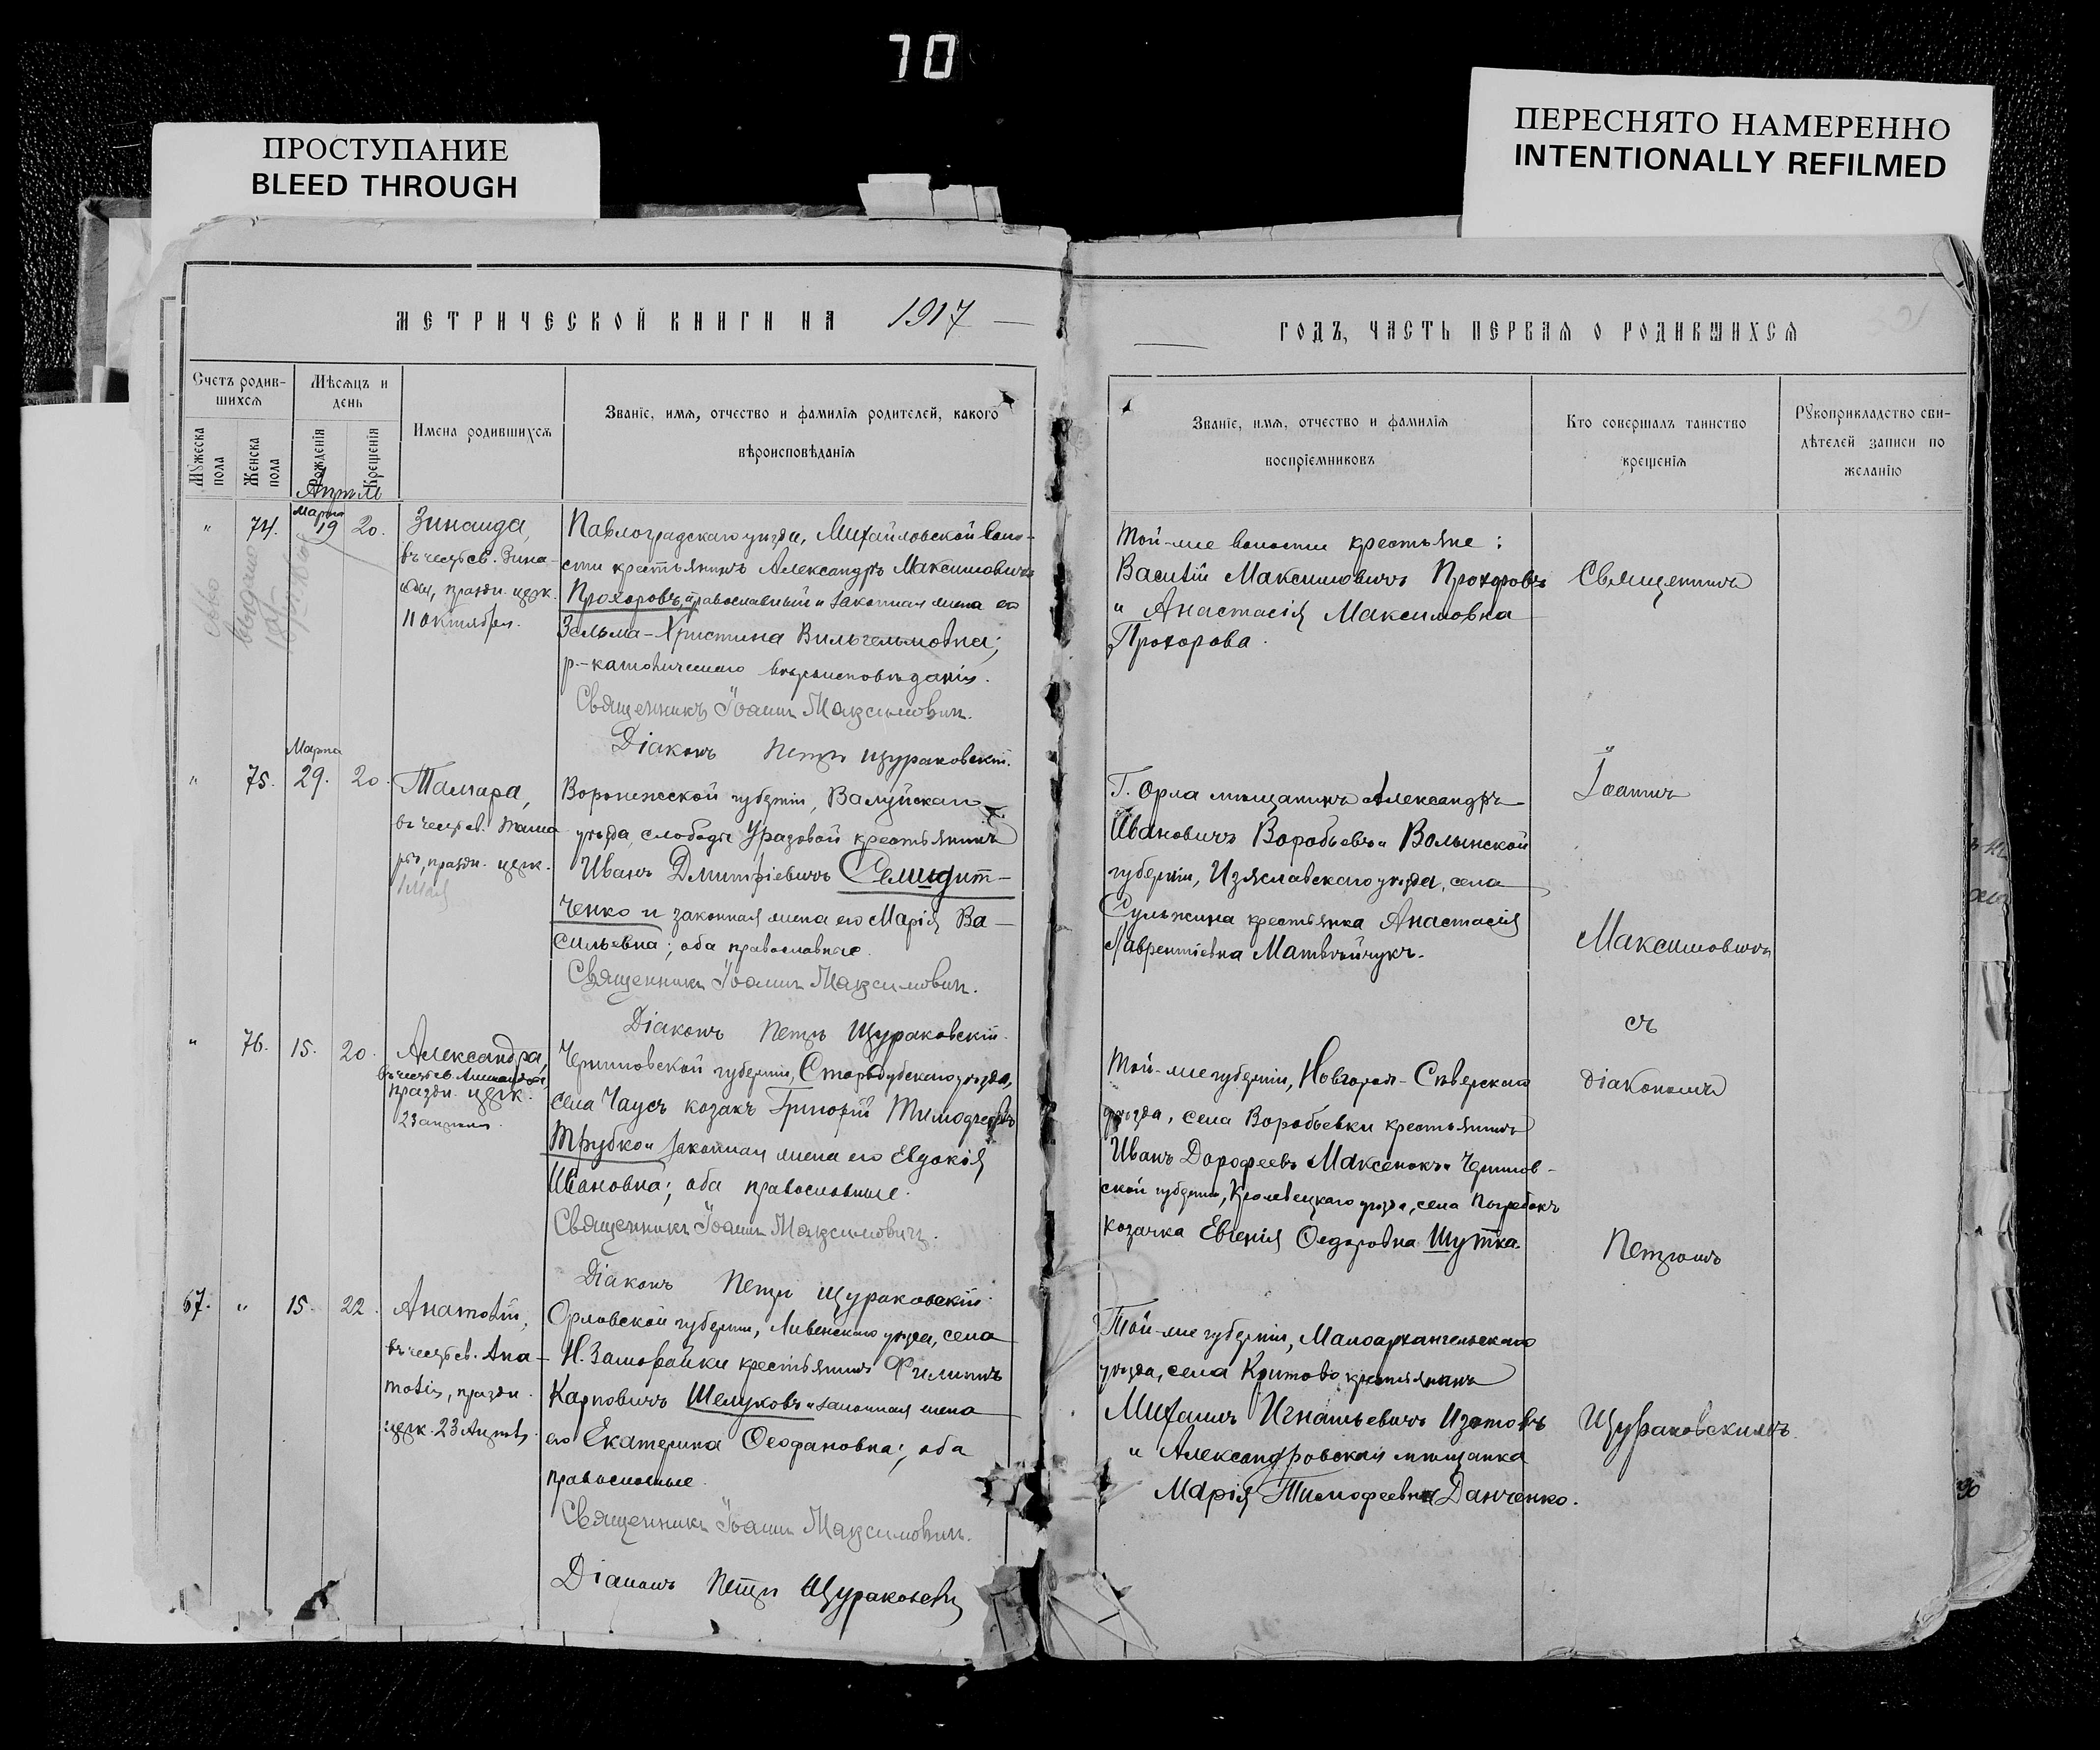 70
ПРОСТУПАНИЕ
BLEED THROUGH
ПЕРЕСНЯТО НАМЕРЕННО
INTENTIONALLY REFILMED
МЕТРИЧЕСКОЙ КНИГИ НА 1917
Счетъ родив-
шихся
Мѣсяцъ и
день
Мужеска
пола
Женска
пола
Рожденія
Крещенія
Имена родившихся
Званіе, имя, отчество и фамилія родителей, какого
вѣроисповѣданія
"
74.
Марта
19
20.
Зинаида,
въ честь св. Зина-
иды, праздн. церк.
11 октября.
Павлоградскаго уѣзда, Михайловской воло-
сти крестьянинъ Александръ Максимовичъ
Прохоровъ, православный и законная жена его
Зельма-Христина Вильгельмовна;
р.-католическаго вѣроисповѣданія.
Священникъ Іоаннъ Максимович.
Діаконъ Петръ Щураковскій.
"
75.
Марта
29.
20.
Тамара,
въ честь св. Тама
ры, праздн. церк.
Воронежской губерніи, Валуйскаго
уѣзда, слободы Уразовой крестьянинъ
Иванъ Дмитріевичъ Семидит-
ченко и законная жена его Марія Ва-
сильевна; оба православные.
Священникъ Іоаннъ Максимович.
Діаконъ Петръ Щураковскій.
"
76.
15.
20.
Александра,
въ честь св. Александры,
праздн. церк.
23 апрѣля.
Черниговской губерніи, Стародубскаго уѣзда,
села Чаусъ козакъ Григорій
Трубко и законная жена его Евдокія
Ивановна; оба православные.
Священникъ Іоаннъ Максимович.
Діаконъ Петръ Щураковскій.
67.
"
15.
22.
Анатолій,
въ честь св. Ана-
толія, праздн.
церк. 23 Апрѣля.
Орловской губерніи, Ливенскаго уѣзда, села
крестьянинъ Филиппъ
Карповичъ Шелуховъ и законная жена
его Екатерина Ѳеофановна; оба
православные.
Священникъ Іоаннъ Максимович.
Діаконъ Петръ Щураковскій
ГОДЪ, ЧАСТЬ ПЕРВАЯ О РОДИВШИХСЯ
Званіе, имя, отчество и фамилія
воспріемниковъ
Кто совершалъ таинство
крещенія
Рукоприкладство сви-
дѣтелей записи по
желанію
Той-же волости крестьяне:
Василій Максимовичъ Прохоровъ
и Анастасія Максимовна
Прохорова.
Г. Орла мѣщанинъ Александръ
Ивановичъ Воробьевъ и Волынской
губерніи, Изяславскаго уѣзда, села
Сульжина крестьянка Анастасія
Лаврентіевна Матвѣйчукъ.
Той-же губерніи, Новгород-Сѣверскаго
уѣзда, села Воробьевки крестьянинъ
Иванъ Дорофеевъ Максенокъ и Чернигов-
ской губерніи, Кролевецкаго уѣзда, села Погребокъ
козачка Евгенія Ѳедоровна Шутка.
Той-же губерніи, Малоархангельскаго
уѣзда, села крестьянинъ
Михаилъ Игнатьевичъ Изотовъ
и Александровская мѣщанка
Марія Тимофеевна Данченко.
Священникъ
Іоаннъ
Максимовичъ
съ
діакономъ
Петромъ
Щураковскимъ.